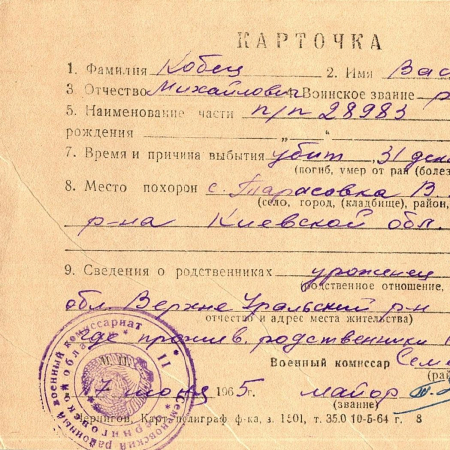 КАРТОЧКА
1. Фамилия Кобец 2. Имя Вас
3. Отчество Михайлович 4. Воинское звание р
5. Наименование части п/п 28983
рождения „ “
7. Время и причина выбытия убит 31 дек
(погиб, умер от ран (болез
8. Место похорон с. Тарасовка В
(село, город, (кладбище), район,
р-на Киевской обл.
9. Сведения о родственниках уроженец
родственное отношение,
обл. Верхне Уральский р-н
отчество и адрес места жительства)
где прожив. родственники
Военный комиссар Сем
(рай
17 1965 г. майор
(звание)
Чернигом, Картополиграф ф-ка, з. 1501, т. 35.0 10-5-64 г. 8
районный военный комиссариат